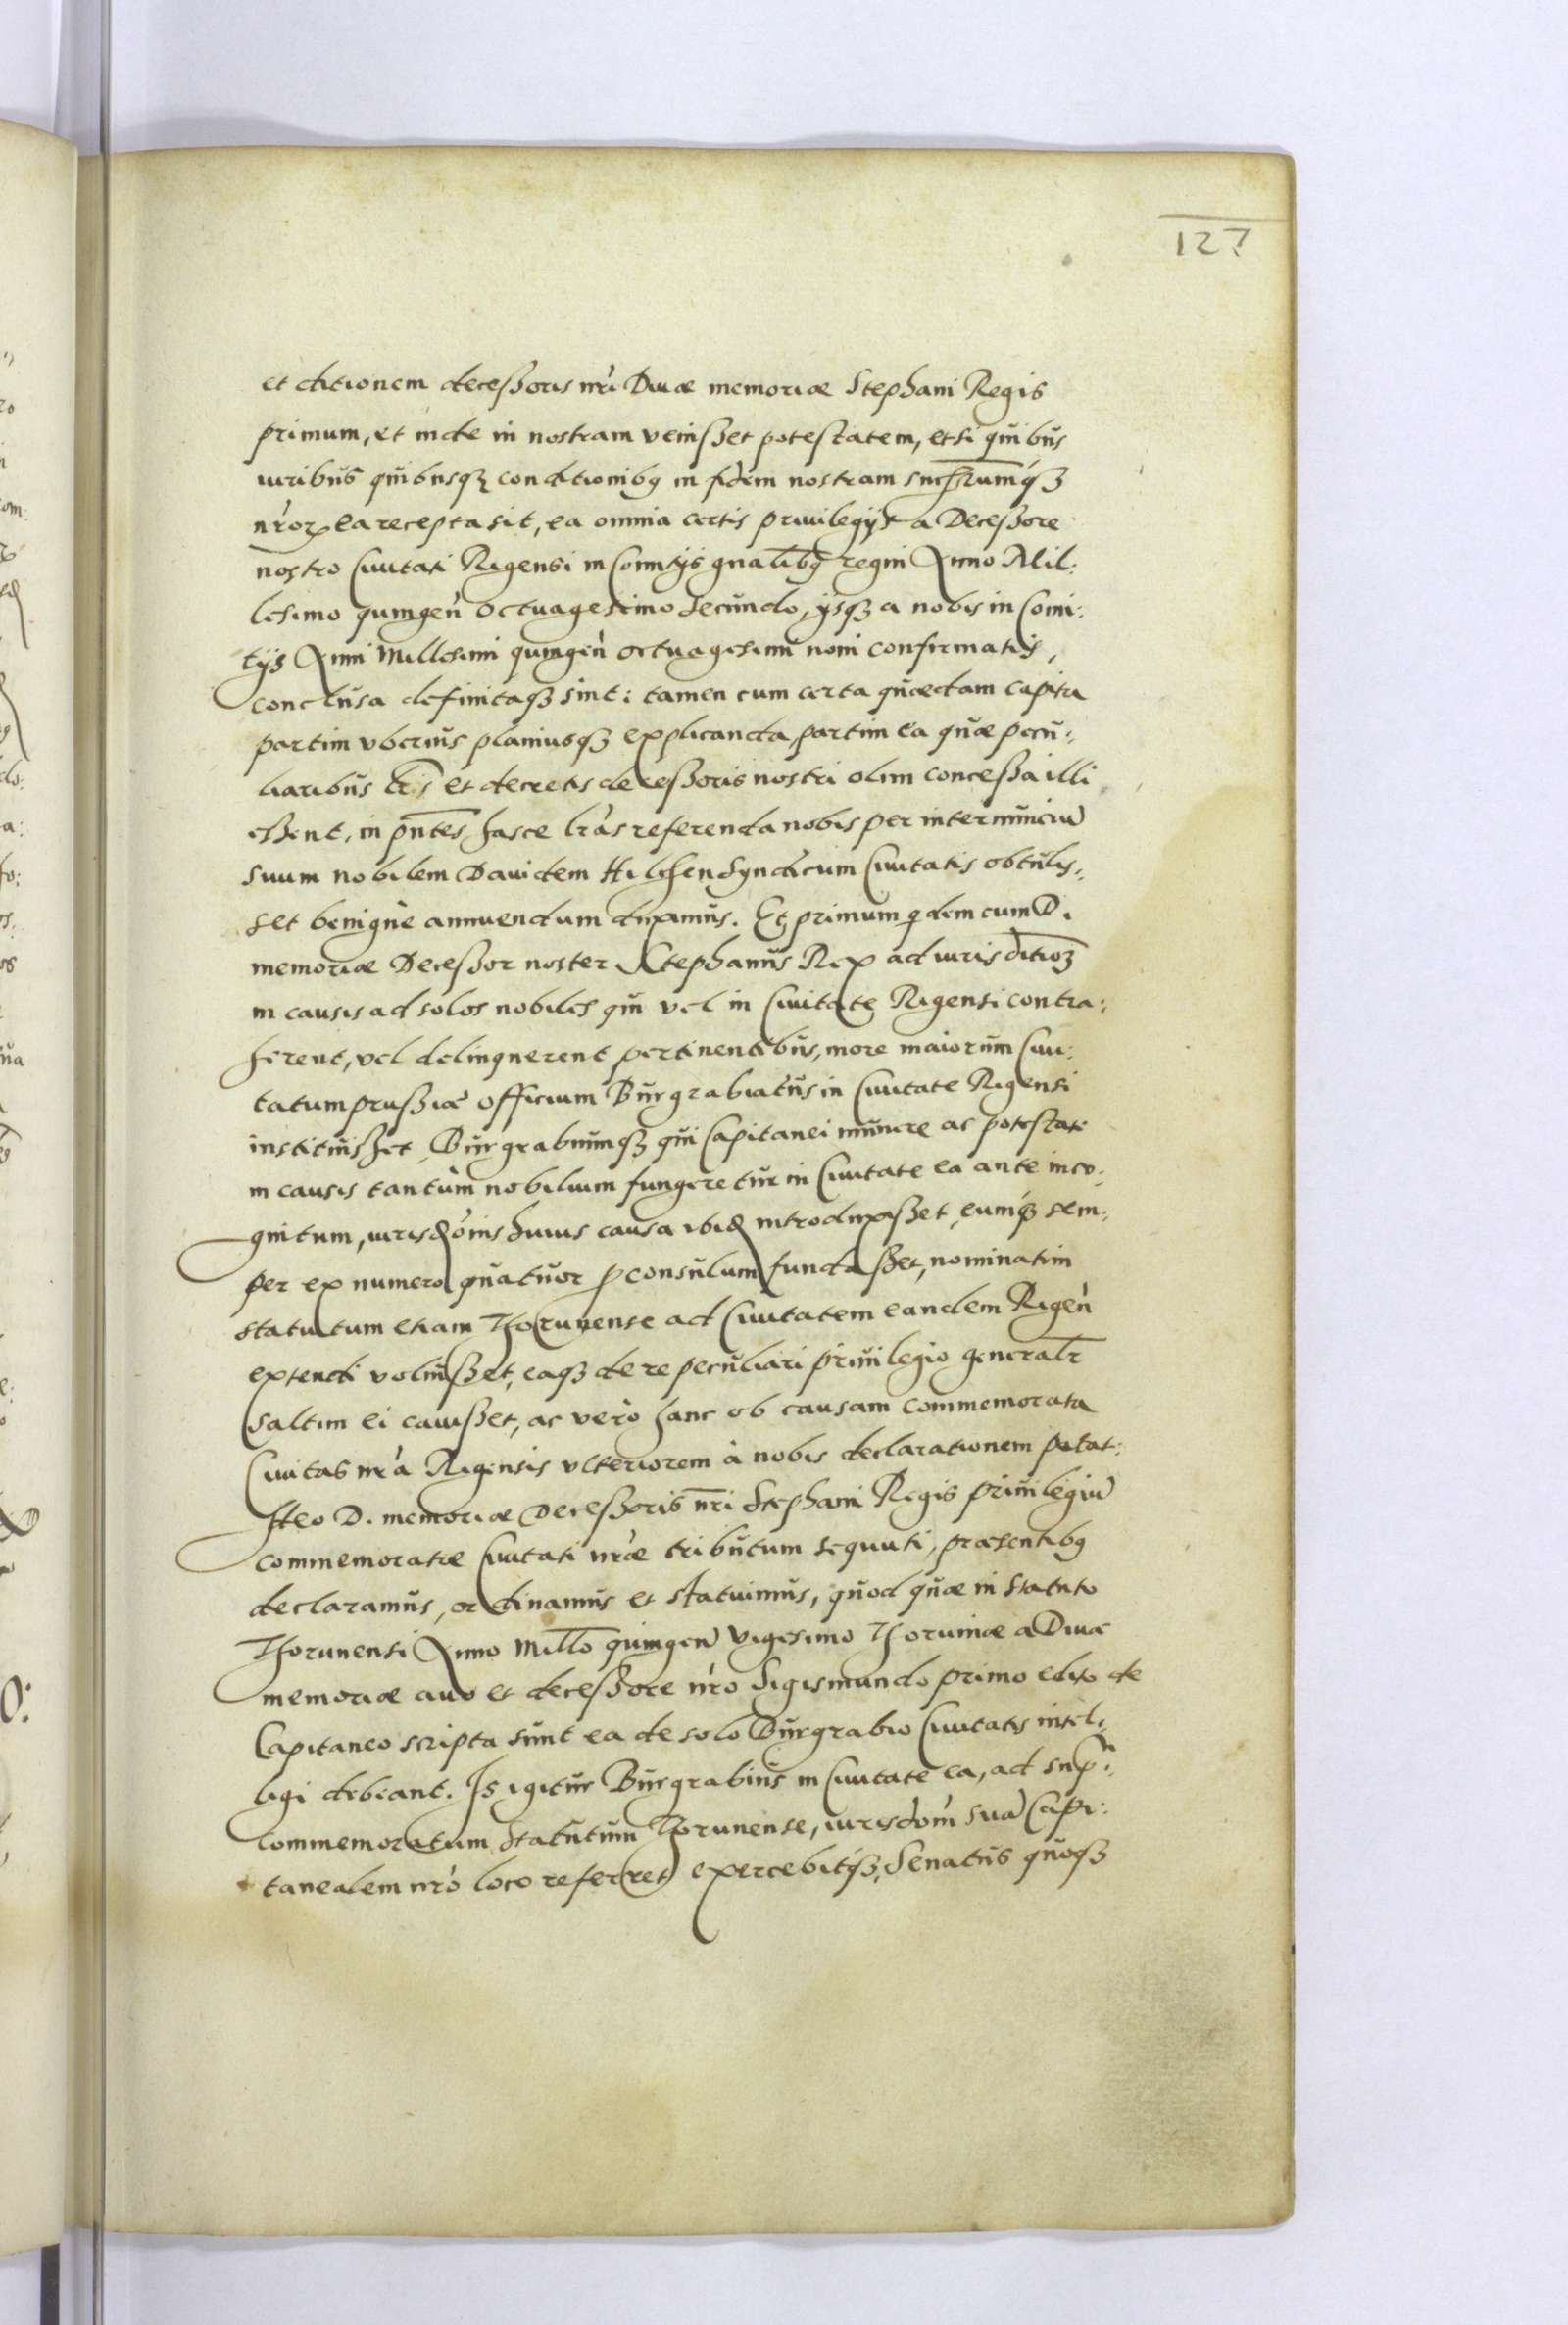 127
et ditionem decessoris nri Divæ memoriæ Stephani Regis
primum, et inde in nostram venisset potestatem, etsi quibus
iuribus quibusq; conditionibq in fidem nostram
nror ea recepta sit, ea omnia certis privilegijs a Decessore
nostro Civitati Rigensi in Comitijs gnalibq regni Anno Mil:
lesimo quingen octuagesimo secundo, ijsq; a nobis in Comi:
tijs Anni Millesimi quingen octuagesimi noni confirmatis,
conclusa definitaq; sint: tamen cum certa quædam capita
partim vberius planiusq; explicanda, partim ea quæ pecu:
liaribus lris et decretis decessoris nostri olim concessa illi
essent, in pntes hasce lras referenda nobis per internunciu
suum nobilem Davidem Hilchen Syndicum Civitatis obtulis:
set benigne annuendum duximus. Et primum qdem cum D.
memoriæ Decessor noster Stephanus Rex ad iurisditio3
in causis ad solos nobiles qui vel in Civitate Rigensi contra:
herent, vel delinquerent pertinentibus, more maiorum Civi:
tatum prussiæ officium Burgrabiatus in Civitate Rigensi
instituisset, Burgrabiumq; qui Capitanei munere ac potestate
in causis tantum nobilium fungeretur in Civitate ea ante inco:
gnitum, iurisdonis huius causa ibid introduxisset, eumq; sem:
per ex numero quatuor proconsulum fundasset, nominatim
statutum etiam Thorunense ad Civitatem eandem Rigen
extendi voluisset, eaq; de re peculiari privilegio generalr
saltem ei cavisset, ac vero hanc ob causam commemorata
Civitas nra Rigensis vlteriorem à nobis declarationem petat:
Ideo D. memoriæ Decessoris nri Stephani Regis privilegiu
commemoratæ Civitati nræ tributum sequuti, præsentibq
declaramus, ordinamus et statuimus, quod quæ in Statuto
Thorunensi Anno Millo quingen vigesimo Thoruniæ a Divæ
memoriæ avo et decessore nro Sigismundo primo edito de
Capitaneo scripta sunt ea de solo Burgrabio Civitatis intel:
ligi debeant. Is igitur Burgrabius in Civitate ea, ad sup:
commemoratum Statutum Thorunense, iurisdom sua Capi:
tanealem nro loco referret exercebitq;, Senatus quoq;